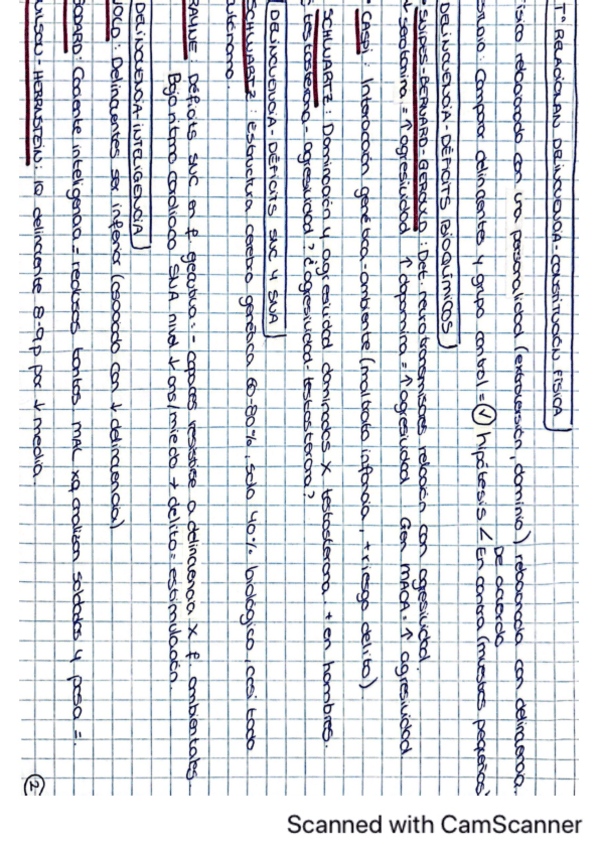 Tª RELACIONAN DELINCUENCIA-CONSTITUCIÓN FÍSICA
físico relacionado con una personalidad (extroversión, dominio) relacionada con delincuencia.
Comparar delincuentes y grupo control = ✓ hipótesis < De acuerdo
En contra (muestras pequeñas)
DELINCUENCIA-DÉFICITS BIOQUÍMICOS
BERNARD-GERAULD: Det. neurotransmisores relación con agresividad.
↓ serotonina = ↑ agresividad ↑ dopamina = ↑ agresividad Gen MAOA = ↑ agresividad
CASPI: Interacción genética-ambiente (maltrato infancia, + riesgo delito).
SCHWARTZ: Dominación y agresividad dominados x testosterona + en hombres.
¿testosterona-agresividad? ¿agresividad-testosterona?
DELINCUENCIA-DÉFICITS SNC Y SNA
SCHWARTZ: estructura cerebro genética 60-80%, solo 40% biológico, casi todo
autónomo.
RAINE: Déficits SNC en f. ejecutiva: - capaces resistirse a delincuencia x f. ambientales.
Bajo ritmo cardíaco SNA nivel ↓ ans/miedo → delito = estimulación.
DELINCUENCIA-INTELIGENCIA
Delincuentes ser inferior (asociado con ↓ delincuencia)
GODARD: Cociente inteligencia = reclusos tontos MAL xq analizan soldados y pasa =.
WILSON-HERRNSTEIN: delincuente 8-9 p por ↓ media.
2
Scanned with CamScanner